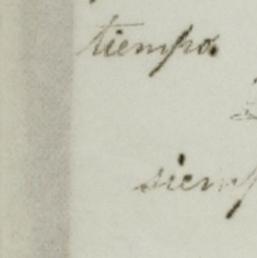 tiempo
siemp